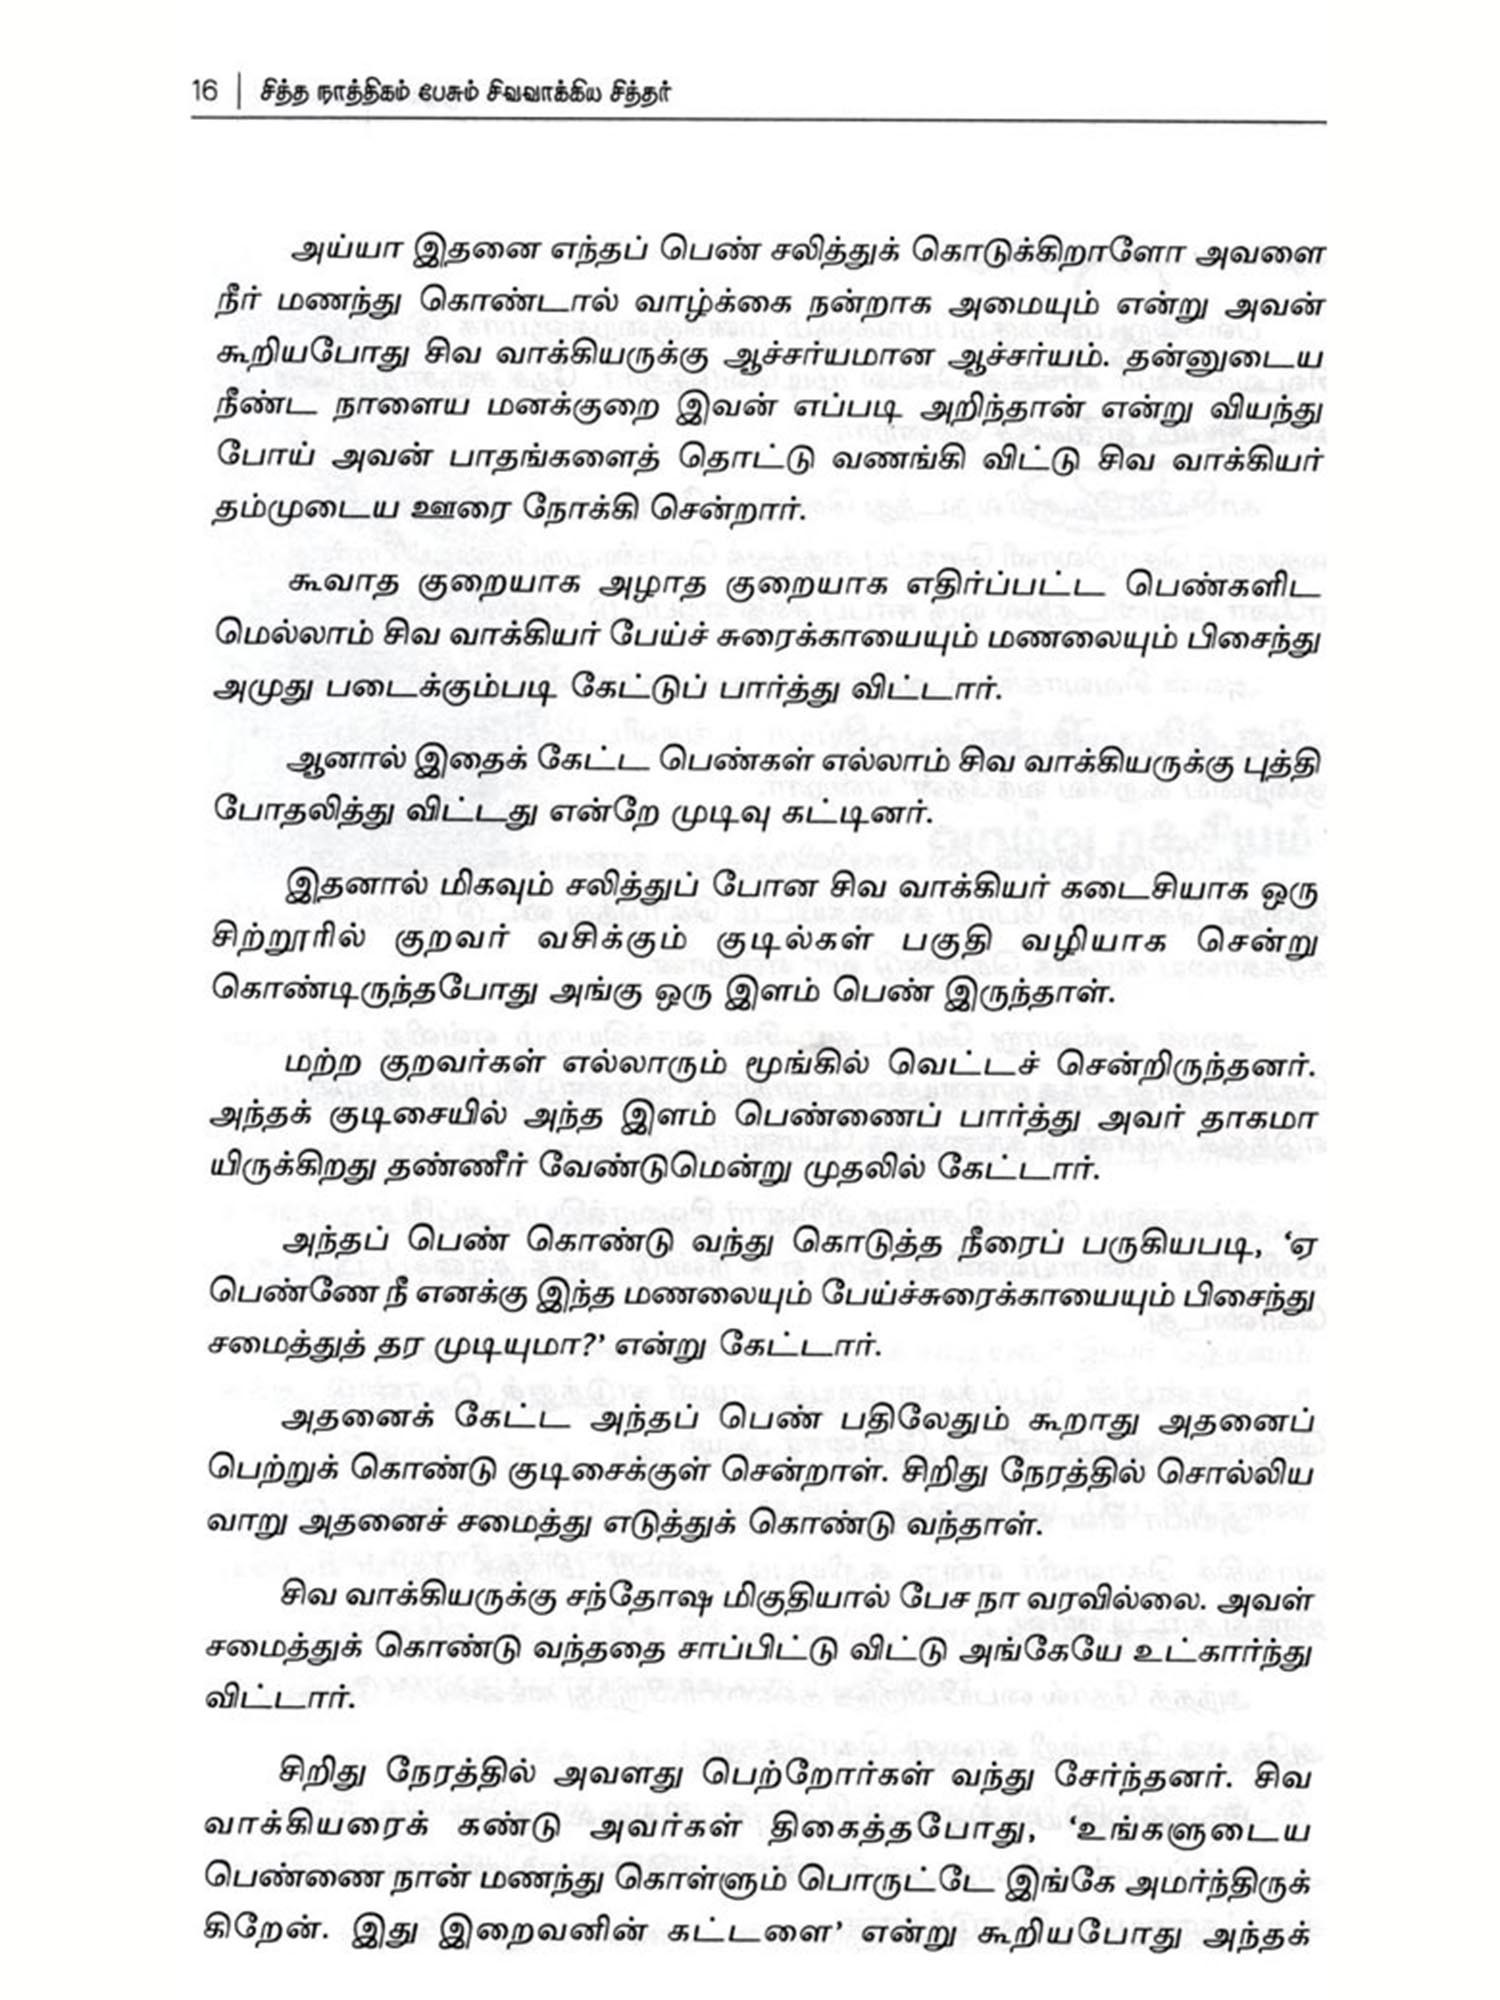 16 | சித்த நாத்திகம் பேசும் சிவவாக்கிய சித்தர்
அய்யா இதனை எந்தப் பெண் சலித்துக் கொடுக்கிறாளோ அவளை
நீர் மணந்து கொண்டால் வாழ்க்கை நன்றாக அமையும் என்று அவன்
கூறியபோது சிவ வாக்கியருக்கு ஆச்சர்யமான ஆச்சர்யம். தன்னுடைய
நீண்ட நாளைய மனக்குறை இவன் எப்படி அறிந்தான் என்று வியந்து
போய் அவன் பாதங்களைத் தொட்டு வணங்கி விட்டு சிவ வாக்கியர்
தம்முடைய ஊரை நோக்கி சென்றார்.
கூவாத குறையாக அழாத குறையாக எதிர்ப்பட்ட பெண்களிட
மெல்லாம் சிவ வாக்கியர் பேய்ச் சுரைக்காயையும் மணலையும் பிசைந்து
அமுது படைக்கும்படி கேட்டுப் பார்த்து விட்டார்.
ஆனால் இதைக் கேட்ட பெண்கள் எல்லாம் சிவ வாக்கியருக்கு புத்தி
போதலித்து விட்டது என்றே முடிவு கட்டினர்.
இதனால் மிகவும் சலித்துப் போன சிவ வாக்கியர் கடைசியாக ஒரு
சிற்றூரில் குறவர் வசிக்கும் குடில்கள் பகுதி வழியாக சென்று
கொண்டிருந்தபோது அங்கு ஒரு இளம் பெண் இருந்தாள்.
மற்ற குறவர்கள் எல்லாரும் மூங்கில் வெட்டச் சென்றிருந்தனர்.
அந்தக் குடிசையில் அந்த இளம் பெண்ணைப் பார்த்து அவர் தாகமா
யிருக்கிறது தண்ணீர் வேண்டுமென்று முதலில் கேட்டார்.
அந்தப் பெண் கொண்டு வந்து கொடுத்த நீரைப் பருகியபடி, ‘ஏ
பெண்ணே நீ எனக்கு இந்த மணலையும் பேய்ச்சுரைக்காயையும் பிசைந்து
சமைத்துத் தர முடியுமா?’ என்று கேட்டார்.
அதனைக் கேட்ட அந்தப் பெண் பதிலேதும் கூறாது அதனைப்
பெற்றுக் கொண்டு குடிசைக்குள் சென்றாள். சிறிது நேரத்தில் சொல்லிய
வாறு அதனைச் சமைத்து எடுத்துக் கொண்டு வந்தாள்.
சிவ வாக்கியருக்கு சந்தோஷ மிகுதியால் பேச நா வரவில்லை. அவள்
சமைத்துக் கொண்டு வந்ததை சாப்பிட்டு விட்டு அங்கேயே உட்கார்ந்து
விட்டார்.
சிறிது நேரத்தில் அவளது பெற்றோர்கள் வந்து சேர்ந்தனர். சிவ
வாக்கியரைக் கண்டு அவர்கள் திகைத்தபோது, ‘உங்களுடைய
பெண்ணை நான் மணந்து கொள்ளும் பொருட்டே இங்கே அமர்ந்திருக்
கிறேன். இது இறைவனின் கட்டளை’ என்று கூறியபோது அந்தக்